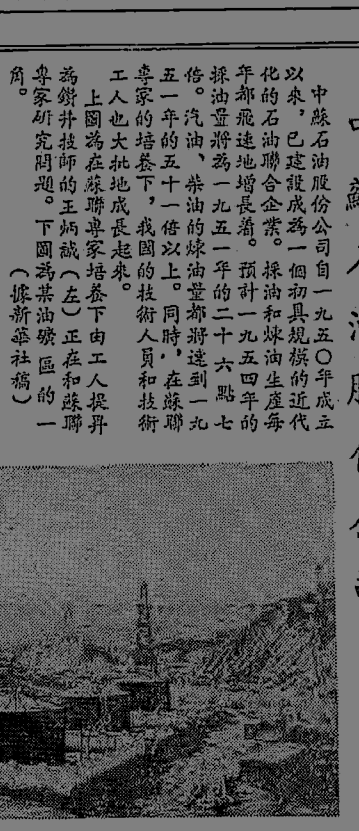 中蘇石油股份公司自一九五〇年成立
以來，已建設成爲一個初具規模的近代
化的石油聯合企業。採油和煉油生產每
年都飛速地增長着。預計一九五四年的
採油量將爲一九五一年的二十六點七
倍。汽油、柴油的煉油量都將達到一九
五一年的五十一倍以上。同時，在蘇聯
專家的培養下，我國的技術人員和技術
工人也大批地成長起來。
上圖爲在蘇聯專家培養下由工人提昇
爲鑽井技師的王炳誠（左）正在和蘇聯
專家研究問題。下圖爲某油礦區的一
角。（據新華社稿）